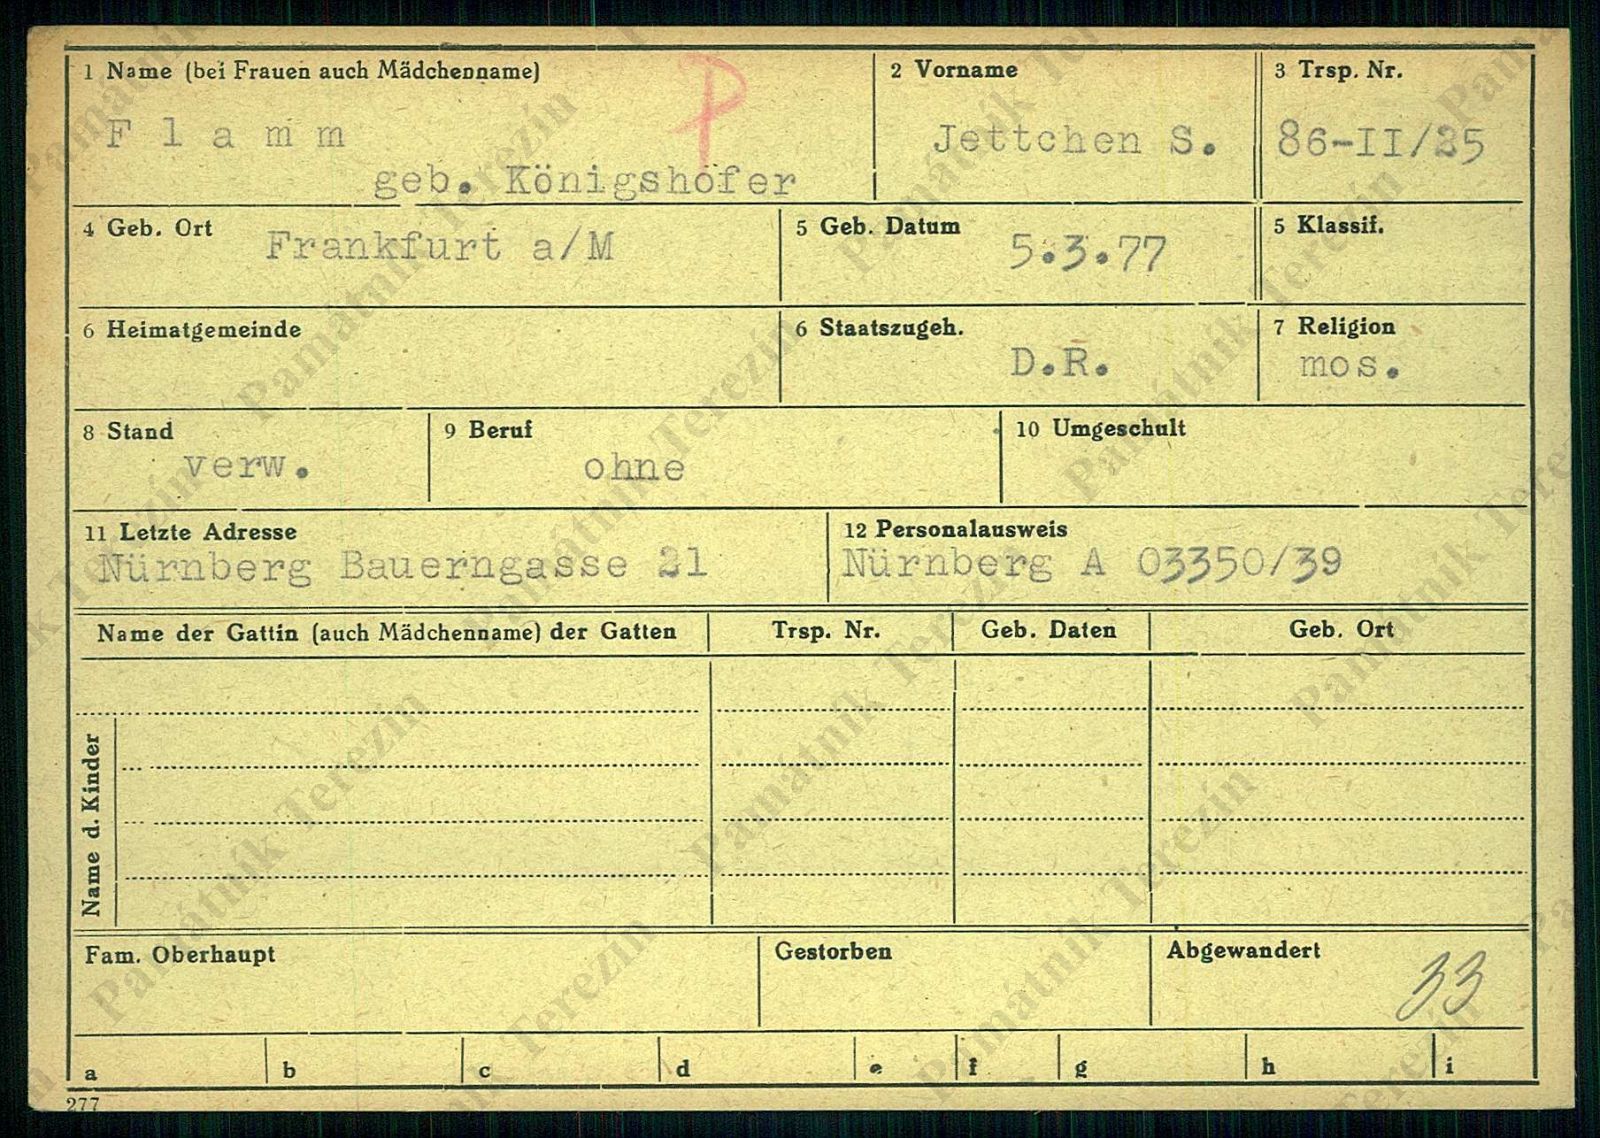 1 Name (bei Frauen auch Mädchenname)
P
2 Vorname
3 Trsp. Nr.
Flamm
Jettchen S.
86-II/25
geb. Königshöfer
4 Geb. Ort
Frankfurt a/M
5 Geb. Datum
5.3.77
5 Klassif.
6 Heimatgemeinde
6 Staatszugeh.
D.R.
7 Religion
mos.
8 Stand
verw.
9 Beruf
ohne
10 Umgeschult
11 Letzte Adresse
Nürnberg Bauerngasse 21
12 Personalausweis
Nürnberg A 03350/39
Name der Gattin (auch Mädchenname) der Gatten
Trsp. Nr.
Geb. Daten
Geb. Ort
Name d. Kinder
Fam. Oberhaupt
Gestorben
Abgewandert
33
a b c d e f g h i
277
Památník Terezín